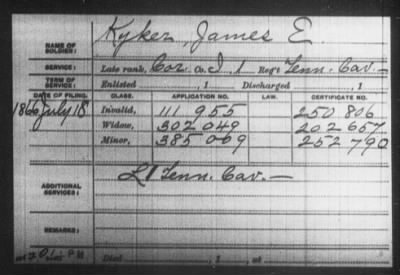 Kyker, James E
NAME OF SOLDIER:
SERVICE: Late rank, Cor. Co. I, 1 Reg't Tenn. Cav.
TERM OF SERVICE: Enlisted , 1 Discharged , 1
DATE OF FILING. CLASS. APPLICATION NO. LAW. CERTIFICATE NO.
1866 July 18 Invalid, 111 955 250 806
Widow, 302 049 202 657
Minor, 385 069 252 790
ADDITIONAL SERVICES: L 1 Tenn. Cav.
REMARKS:
Died , 1 , at